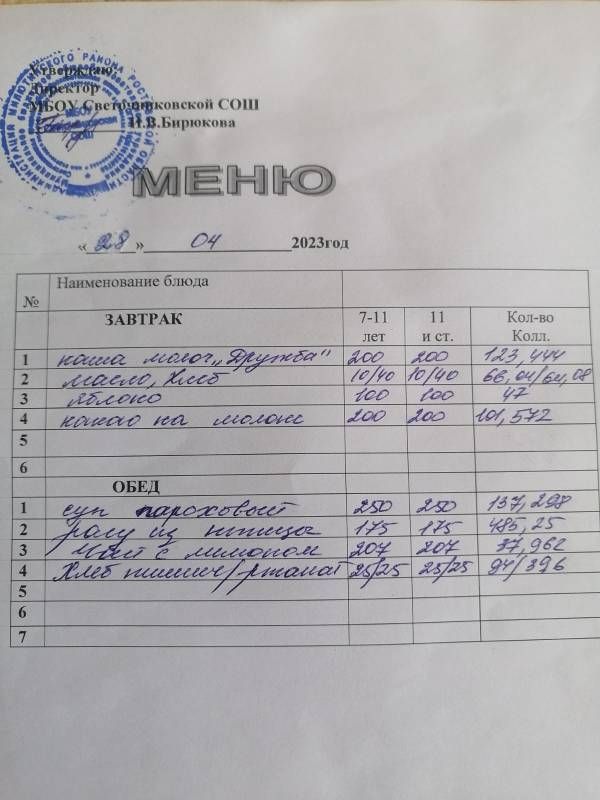 Утверждаю:
Директор
МБОУ Светочниковской СОШ
И.В.Бирюкова
МЕНЮ
« 28 » 04 2023год
№ Наименование блюда
ЗАВТРАК 7-11 лет 11 и ст. Кол-во Колл.
1 каша молоч„Дружба" 200 200 123,444
2 масло, хлеб 10/40 10/40 66,04/64,08
3 яблоко 100 100 47
4 какао на молоке 200 200 101,572
5
6
ОБЕД
1 суп гороховый 250 250 137,298
2 рагу из птицы 175 175 485,25
3 Чай с лимоном 207 207 37,962
4 Хлеб пшенич/ржаной 25/25 25/25 94/396
5
6
7